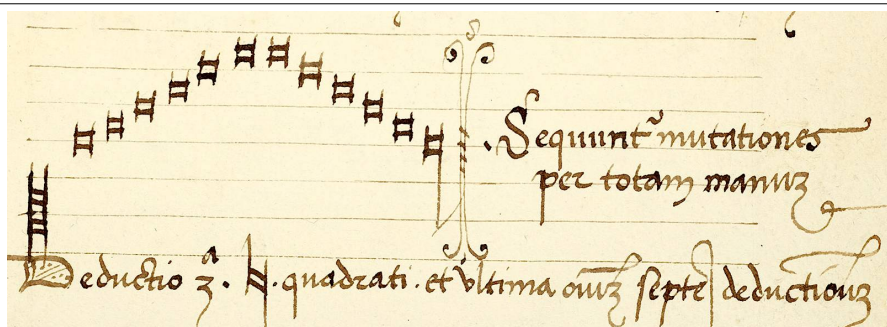 Sequunt᷑ mutationes
per totam manuʒ
Deductio 3ᵃ. ♮. quadrati. et vltima oīuʒ septē deductionūʒ